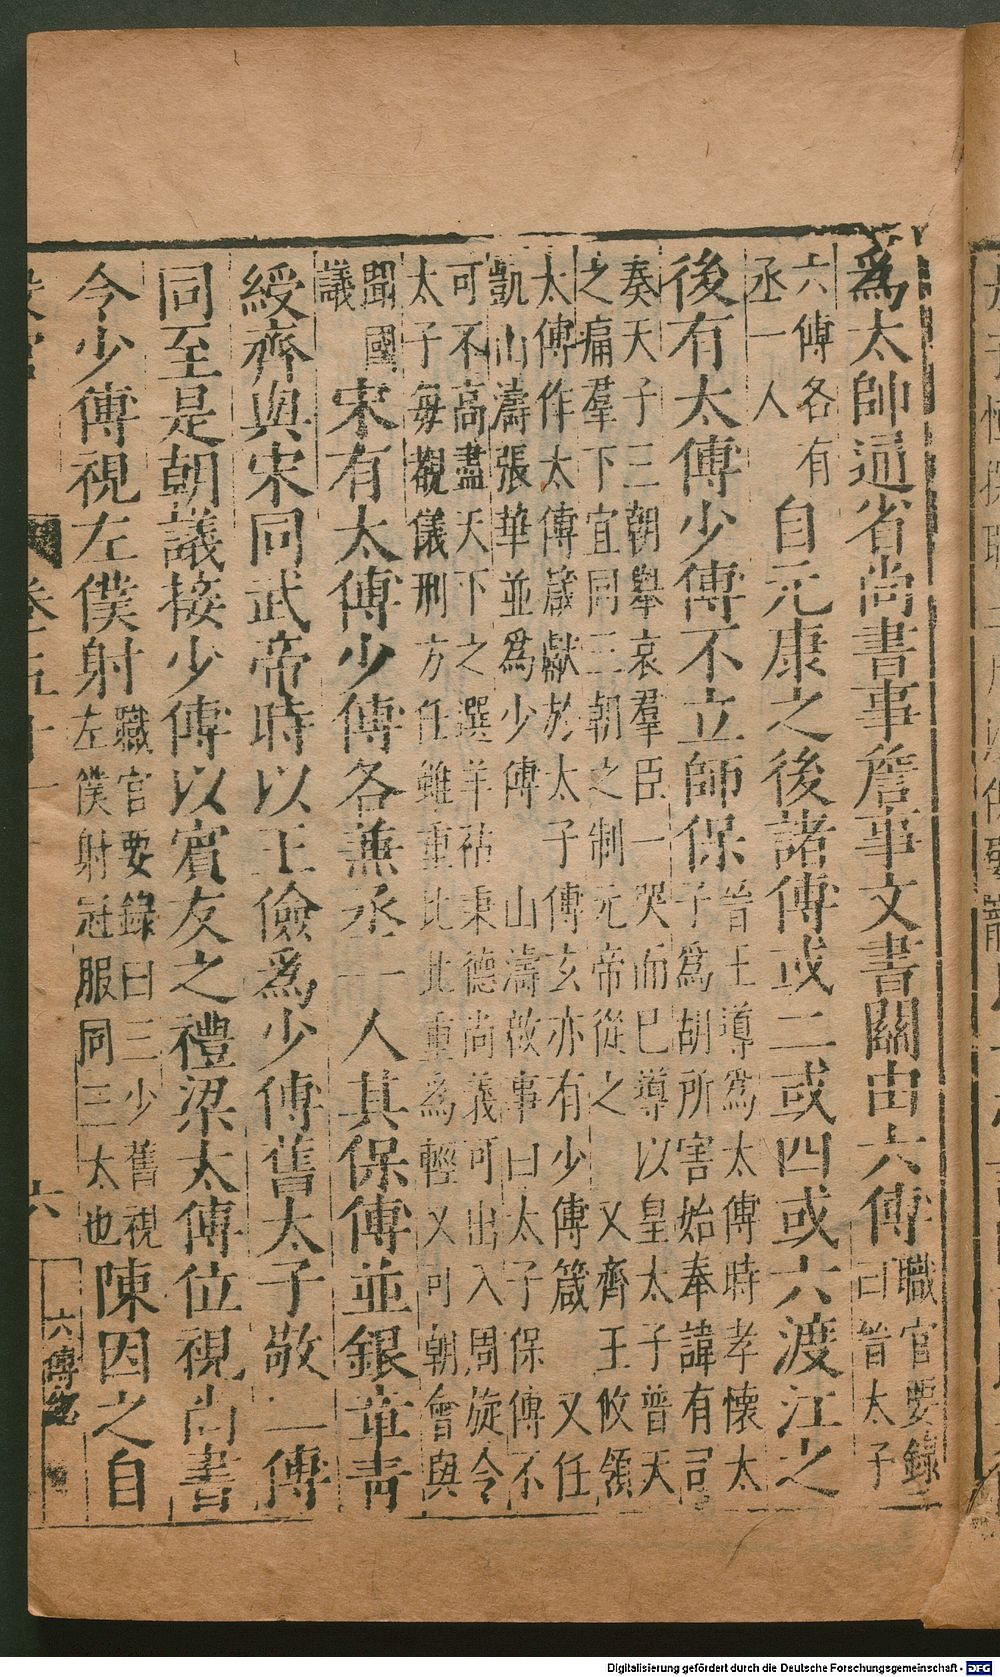 為太帥通省尚書事詹事文書關由六傅職官要錄
曰晉太子
六傅各有
丞一人自元康之後諸傅或二或四或六渡江之
後有太傅少傅不立師保晉王導為太傅時孝懷太
子為胡所害始奉諱有司
奏天子三朝舉哀羣臣一哭而已導以皇太子普天
之痛羣下宜同三朝之制元帝從之 又齊王攸領
太傅作太傅箴獻於太子傅玄亦有少傅箴 又任
凱山濤張華並為少傅 山濤故事曰太子保傅不
可不高盡天下之選羊祜秉德尚義可出入周旋令
太子每觀儀刑方任雖重比此重為輕又可朝會與
聞國
議宋有太傅少傅各兼丞一人其保傅並銀章青
綬齊與宋同武帝時以王儉為少傅舊太子敬二傅
同至是朝議接少傅以賓友之禮梁太傅位視尚書
令少傅視左僕射職官要錄曰三少舊視
左僕射冠服同三太也陳因之自
卷五十一
六
六傅
Digitalisierung gefördert durch die Deutsche Forschungsgemeinschaft - DFG